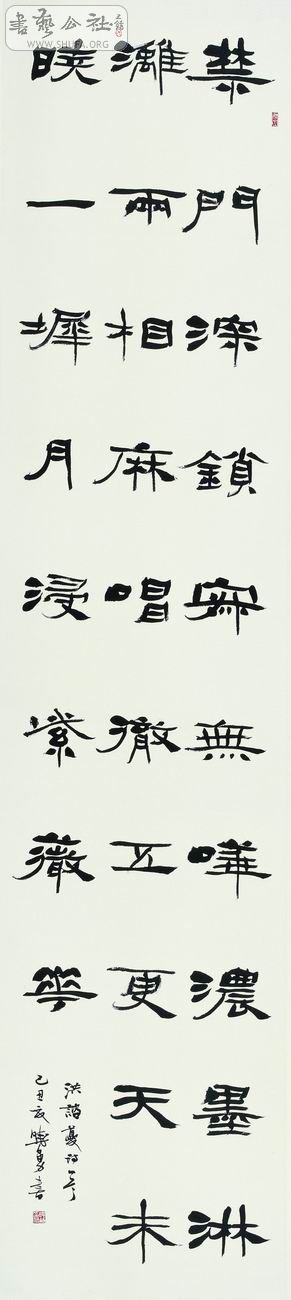 書藝公社
WWW.SHUFA.ORG
禁門深鎖寂無嘩濃墨淋
灕兩相麻唱徹五更天未
曉一墀月浸紫薇花
洪諮夔詩
己丑夏 書